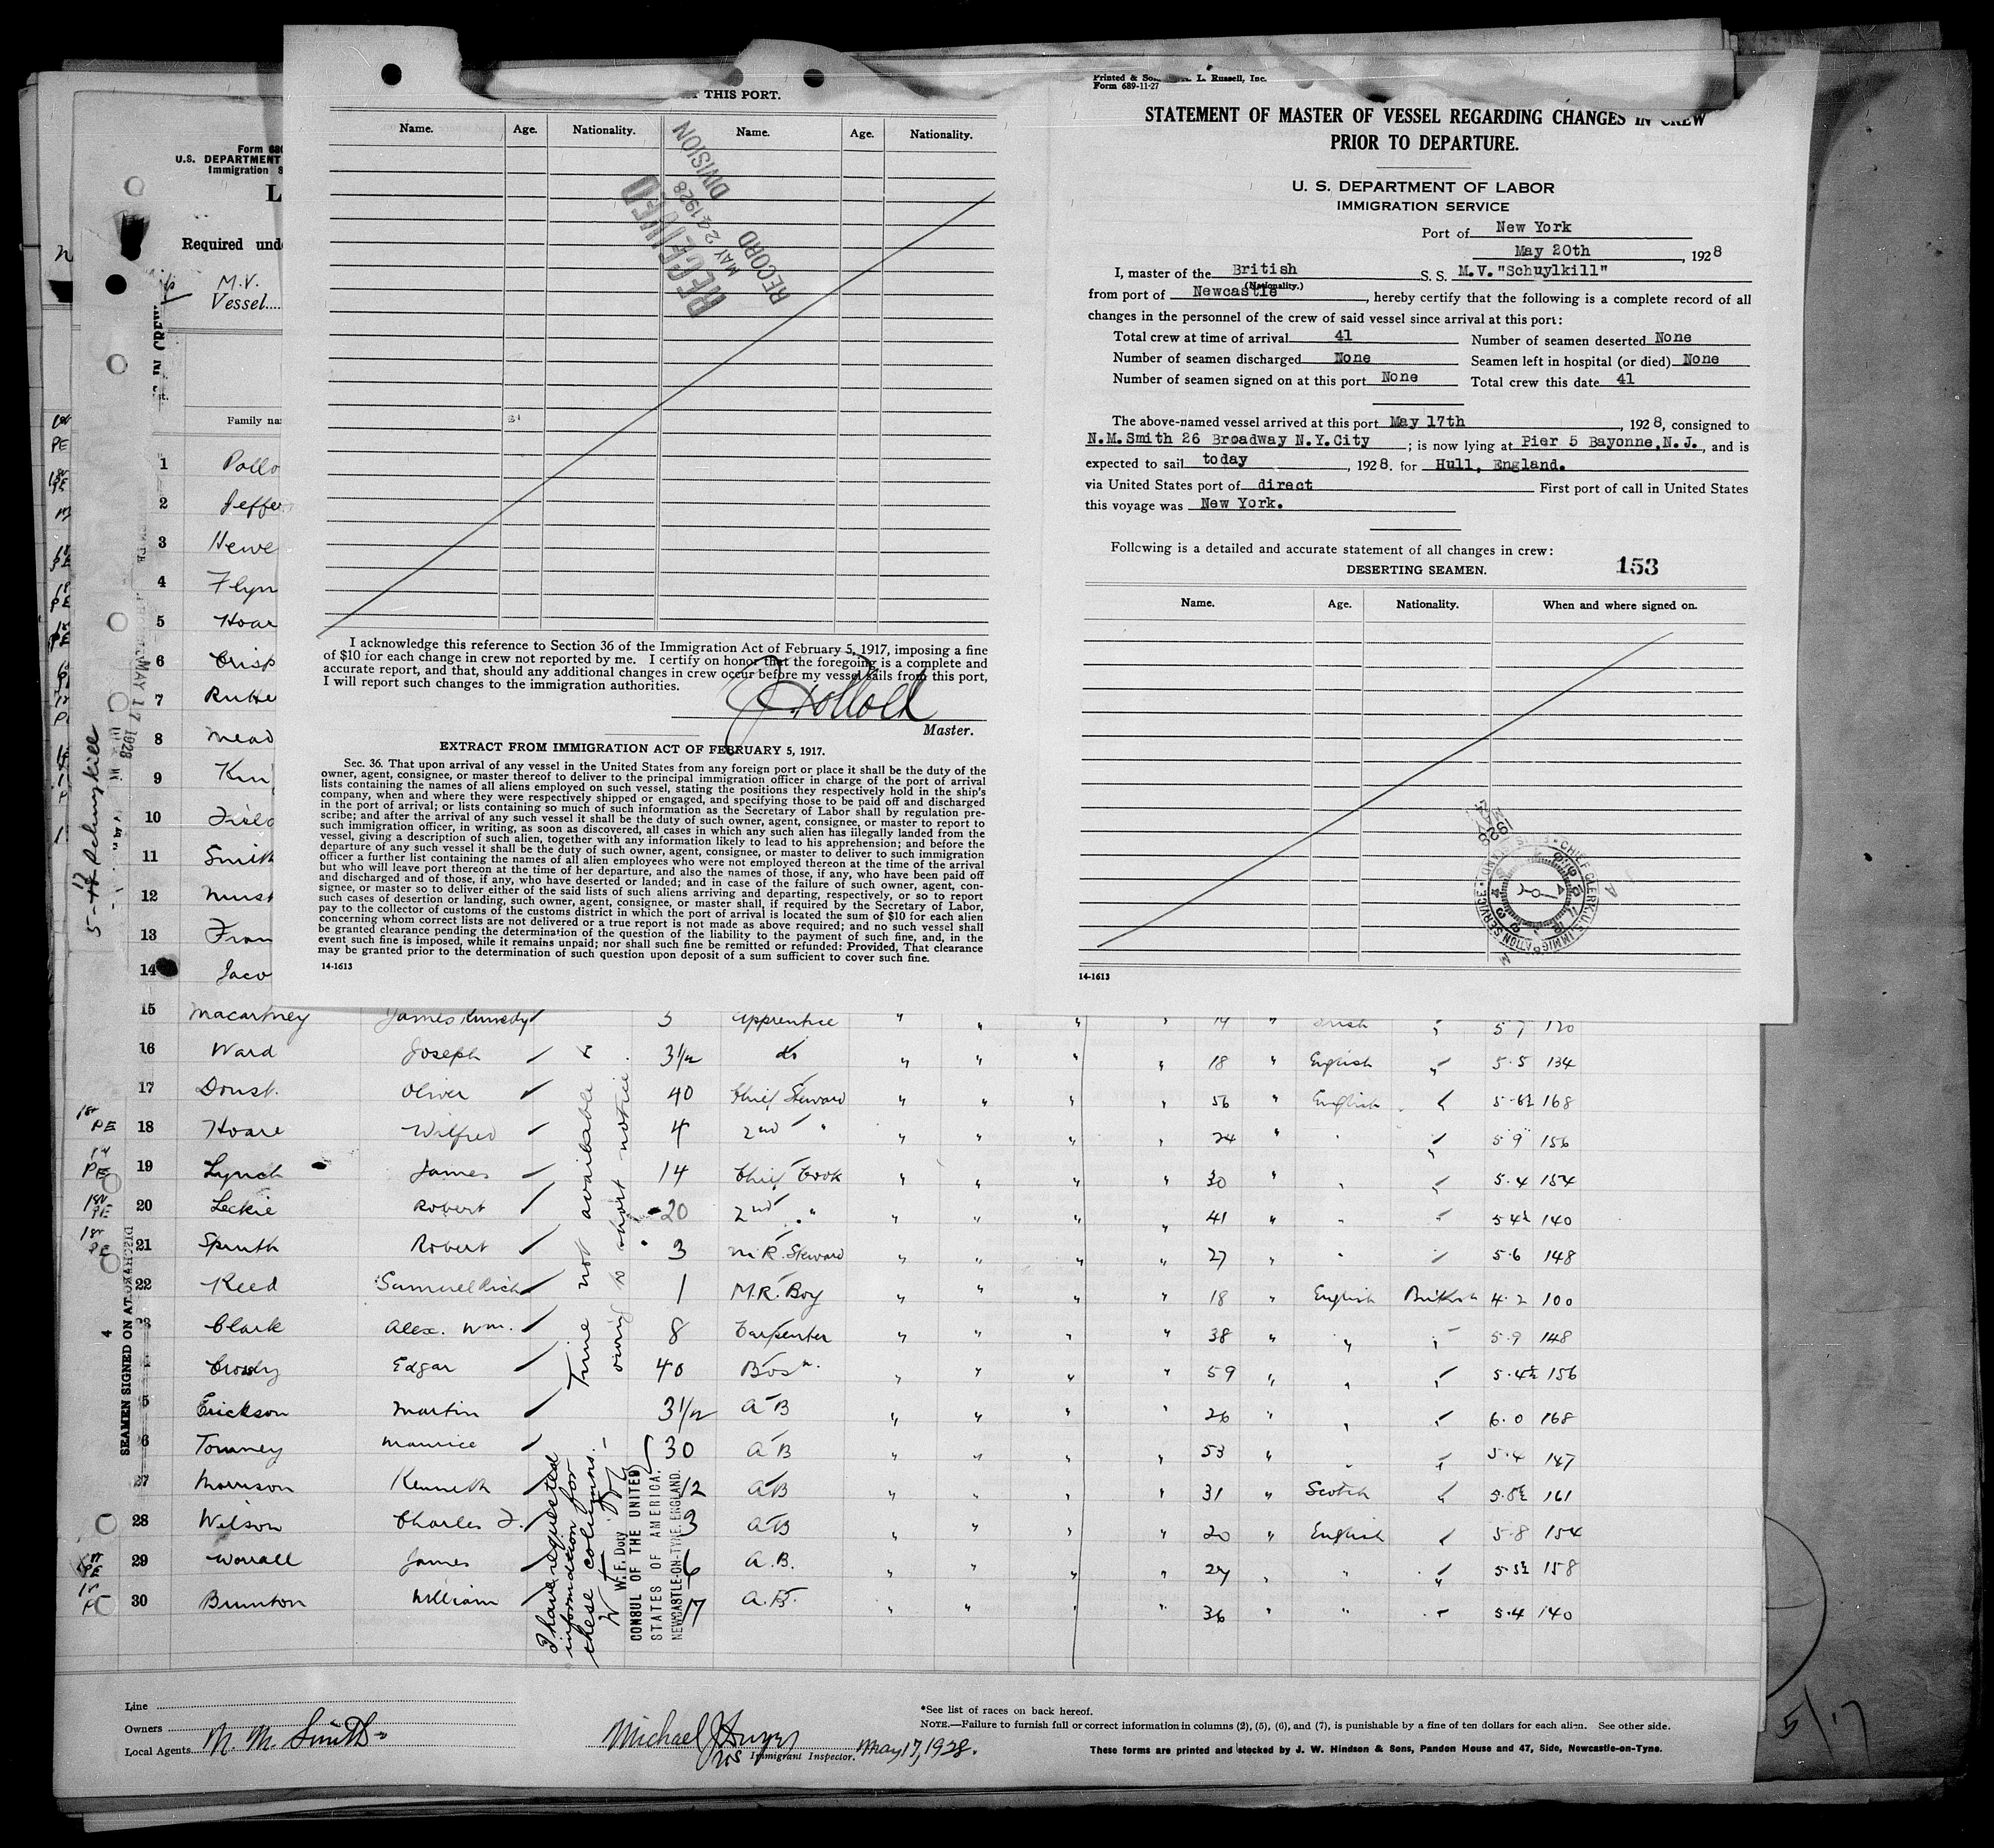 T THIS PORT.
Name. Age. Nationality. Name. Age. Nationality.
RECEIVED
MAY 24 1928
RECORD DIVISION
I acknowledge this reference to Section 36 of the Immigration Act of February 5, 1917, imposing a fine
of $10 for each change in crew not reported by me. I certify on honor that the foregoing is a complete and
accurate report, and that, should any additional changes in crew occur before my vessel sails from this port,
I will report such changes to the immigration authorities.
Master.
EXTRACT FROM IMMIGRATION ACT OF FEBRUARY 5, 1917.
Sec. 36. That upon arrival of any vessel in the United States from any foreign port or place it shall be the duty of the
owner, agent, consignee, or master thereof to deliver to the principal immigration officer in charge of the port of arrival
lists containing the names of all aliens employed on such vessel, stating the positions they respectively hold in the ship's
company, when and where they were respectively shipped or engaged, and specifying those to be paid off and discharged
in the port of arrival; or lists containing so much of such information as the Secretary of Labor shall by regulation pre-
scribe; and after the arrival of any such vessel it shall be the duty of such owner, agent, consignee, or master to report to
such immigration officer, in writing, as soon as discovered, all cases in which any such alien has illegally landed from the
vessel, giving a description of such alien, together with any information likely to lead to his apprehension; and before the
departure of any such vessel it shall be the duty of such owner, agent, consignee, or master to deliver to such immigration
officer a further list containing the names of all alien employees who were not employed thereon at the time of the arrival
but who will leave port thereon at the time of her departure, and also the names of those, if any, who have been paid off
and discharged and of those, if any, who have deserted or landed; and in case of the failure of such owner, agent, con-
signee, or master so to deliver either of the said lists of such aliens arriving and departing, respectively, or so to report
such cases of desertion or landing, such owner, agent, consignee, or master shall, if required by the Secretary of Labor,
pay to the collector of customs of the customs district in which the port of arrival is located the sum of $10 for each alien
concerning whom correct lists are not delivered or a true report is not made as above required; and no such vessel shall
be granted clearance pending the determination of the question of the liability to the payment of such fine, and, in the
event such fine is imposed, while it remains unpaid; nor shall such fine be remitted or refunded: Provided, That clearance
may be granted prior to the determination of such question upon deposit of a sum sufficient to cover such fine.
14-1613
Printed & L. Russell, Inc.
Form 689-11-27
STATEMENT OF MASTER OF VESSEL REGARDING CHANGES IN CREW
PRIOR TO DEPARTURE.
U. S. DEPARTMENT OF LABOR
IMMIGRATION SERVICE
Port of New York
May 20th, 1928
I, master of the British S. S. M.V. "Schuylkill"
(Nationality.)
from port of Newcastle, hereby certify that the following is a complete record of all
changes in the personnel of the crew of said vessel since arrival at this port:
Total crew at time of arrival 41 Number of seamen deserted None
Number of seamen discharged None Seamen left in hospital (or died) None
Number of seamen signed on at this port None Total crew this date 41
The above-named vessel arrived at this port May 17th, 1928, consigned to
N.M.Smith 26 Broadway N.Y.City; is now lying at Pier 5 Bayonne,N.J., and is
expected to sail today, 1928. for Hull, England.
via United States port of direct First port of call in United States
this voyage was New York.
Following is a detailed and accurate statement of all changes in crew:
DESERTING SEAMEN. 153
Name. Age. Nationality. When and where signed on.
14-1613
U.S. DEPARTMENT
Immigration
Required und
M.V.
Vessel
Family na
1 Pollo
2 Jeffer
3 Hewe
4 Flyn
5 Hoar
6 Crisp
7
8 Mead
9
10 Field
11 Smith
12 Must
13 Fran
14 Jaco
15 Macartney James Kennedy 3 Apprentice " " " " 19 " Irish " 5 7 120
16 Ward Joseph 3/12 do " " " " 18 " English " 5.5 134
17 Doust. Oliver 40 Chief Steward " " " " 56 " English " 5-6½ 168
18 Hoare Wilfred 4 2nd " " " " " 24 " " " 5 9 156
19 Lynch James 14 Chief Cook " " " " 30 " " " 5.4 154
20 Leckie Robert 20 2nd " " " " " 41 " " " 5 4½ 140
21 Robert 3 M.R. Steward " " " " 27 " " " 5.6 148
22 Reed Samuel Rich 1 M.R. Boy " " " " 18 " English British 4.2 100
23 Clark Alex. Wm. 8 Carpenter " " " " 38 " " " 5.9 148
Edgar 40 Bosn. " " " " 59 " " " 5.4½ 156
5 Erickson Martin 3/12 A B " " " " 26 " " " 6.0 168
6 Maurice 30 A B " " " " 53 " " " 5.4 147
27 Morrison Kenneth 12 A B " " " " 31 " Scotch " 5.8½ 161
28 Wilson Charles F. 3 A B " " " " 20 " English " 5.8 154
29 Worrall James 6 A.B. " " " " 27 " " " 5.3½ 158
30 Brunton William 17 A.B. " " " " 36 " " " 5.4 140
Time not available &
owing to short notice.
I have requested
information for
these columns.
W. F. Doty
CONSUL OF THE UNITED
STATES OF AMERICA.
NEWCASTLE-ON-TYNE, ENGLAND.
MAY 17 1928
SEAMEN SIGNED ON AT
Line
Owners
Local Agents N. M. Smith
Michael J.
Immigrant Inspector. May 17, 1928.
*See list of races on back hereof.
NOTE.—Failure to furnish full or correct information in columns (2), (5), (6), and (7), is punishable by a fine of ten dollars for each alien. See other side.
These forms are printed and stocked by J. W. Hindson & Sons, Pandon House and 47, Side, Newcastle-on-Tyne.
5/17